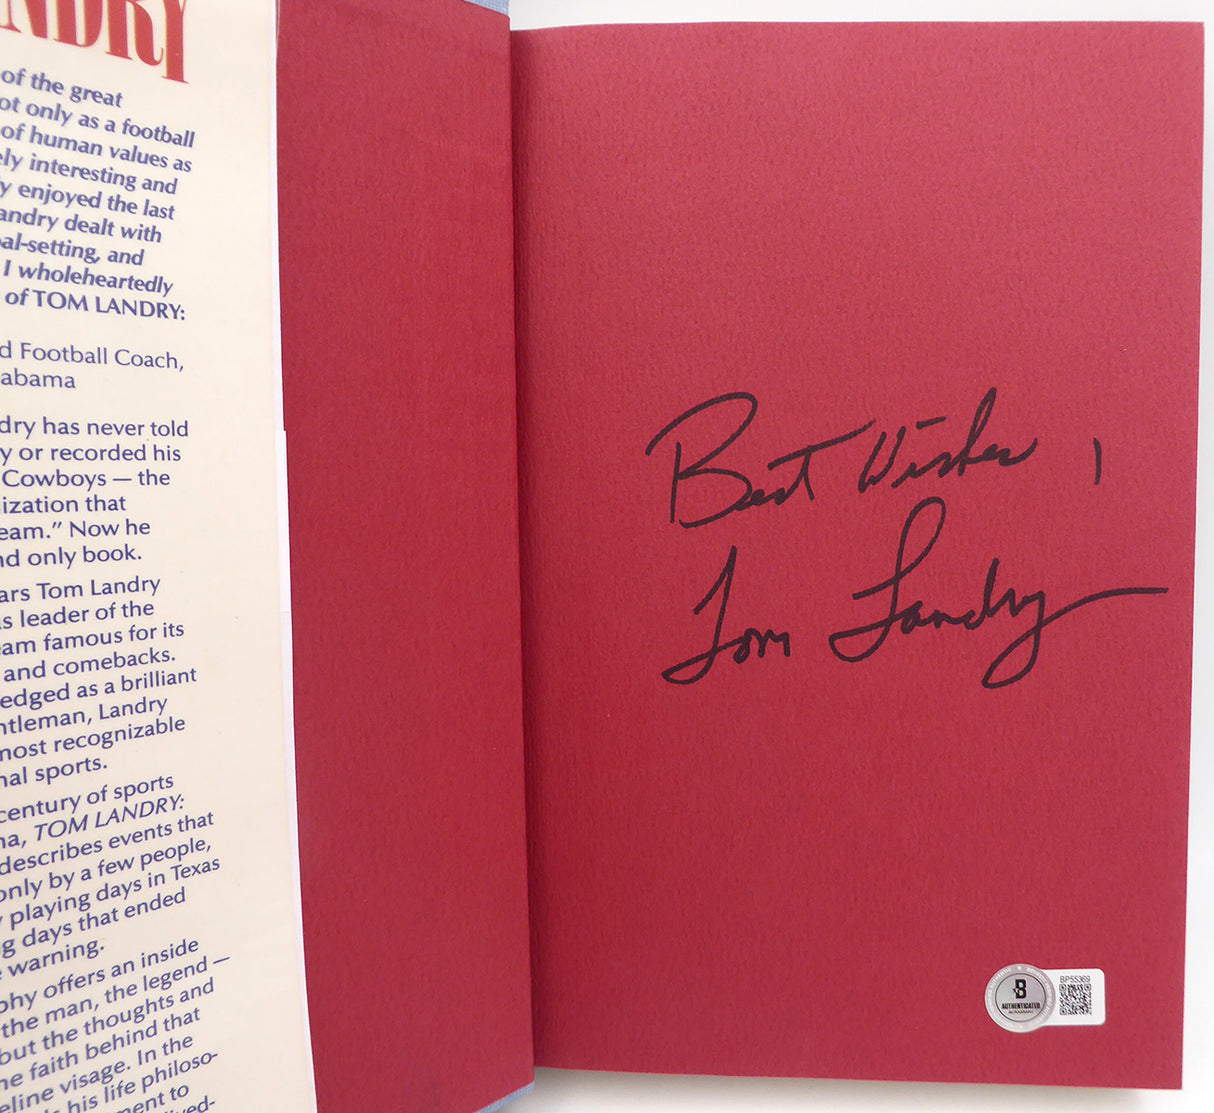 NDRY
of the great
ot only as a football
of human values as
ely interesting and
y enjoyed the last
andry dealt with
al-setting, and
I wholeheartedly
of TOM LANDRY:
d Football Coach,
abama
dry has never told
y or recorded his
Cowboys — the
ization that
eam.” Now he
nd only book.
ars Tom Landry
s leader of the
eam famous for its
and comebacks.
edged as a brilliant
ntleman, Landry
most recognizable
nal sports.
century of sports
na, TOM LANDRY:
describes events that
only by a few people,
playing days in Texas
g days that ended
warning.
phy offers an inside
the man, the legend —
but the thoughts and
he faith behind that
eline visage. In the
his life philoso-
ment to
ved-
Best Wishes,
Tom Landry
B
AUTHENTICATED
AUTOGRAPH
BP55369